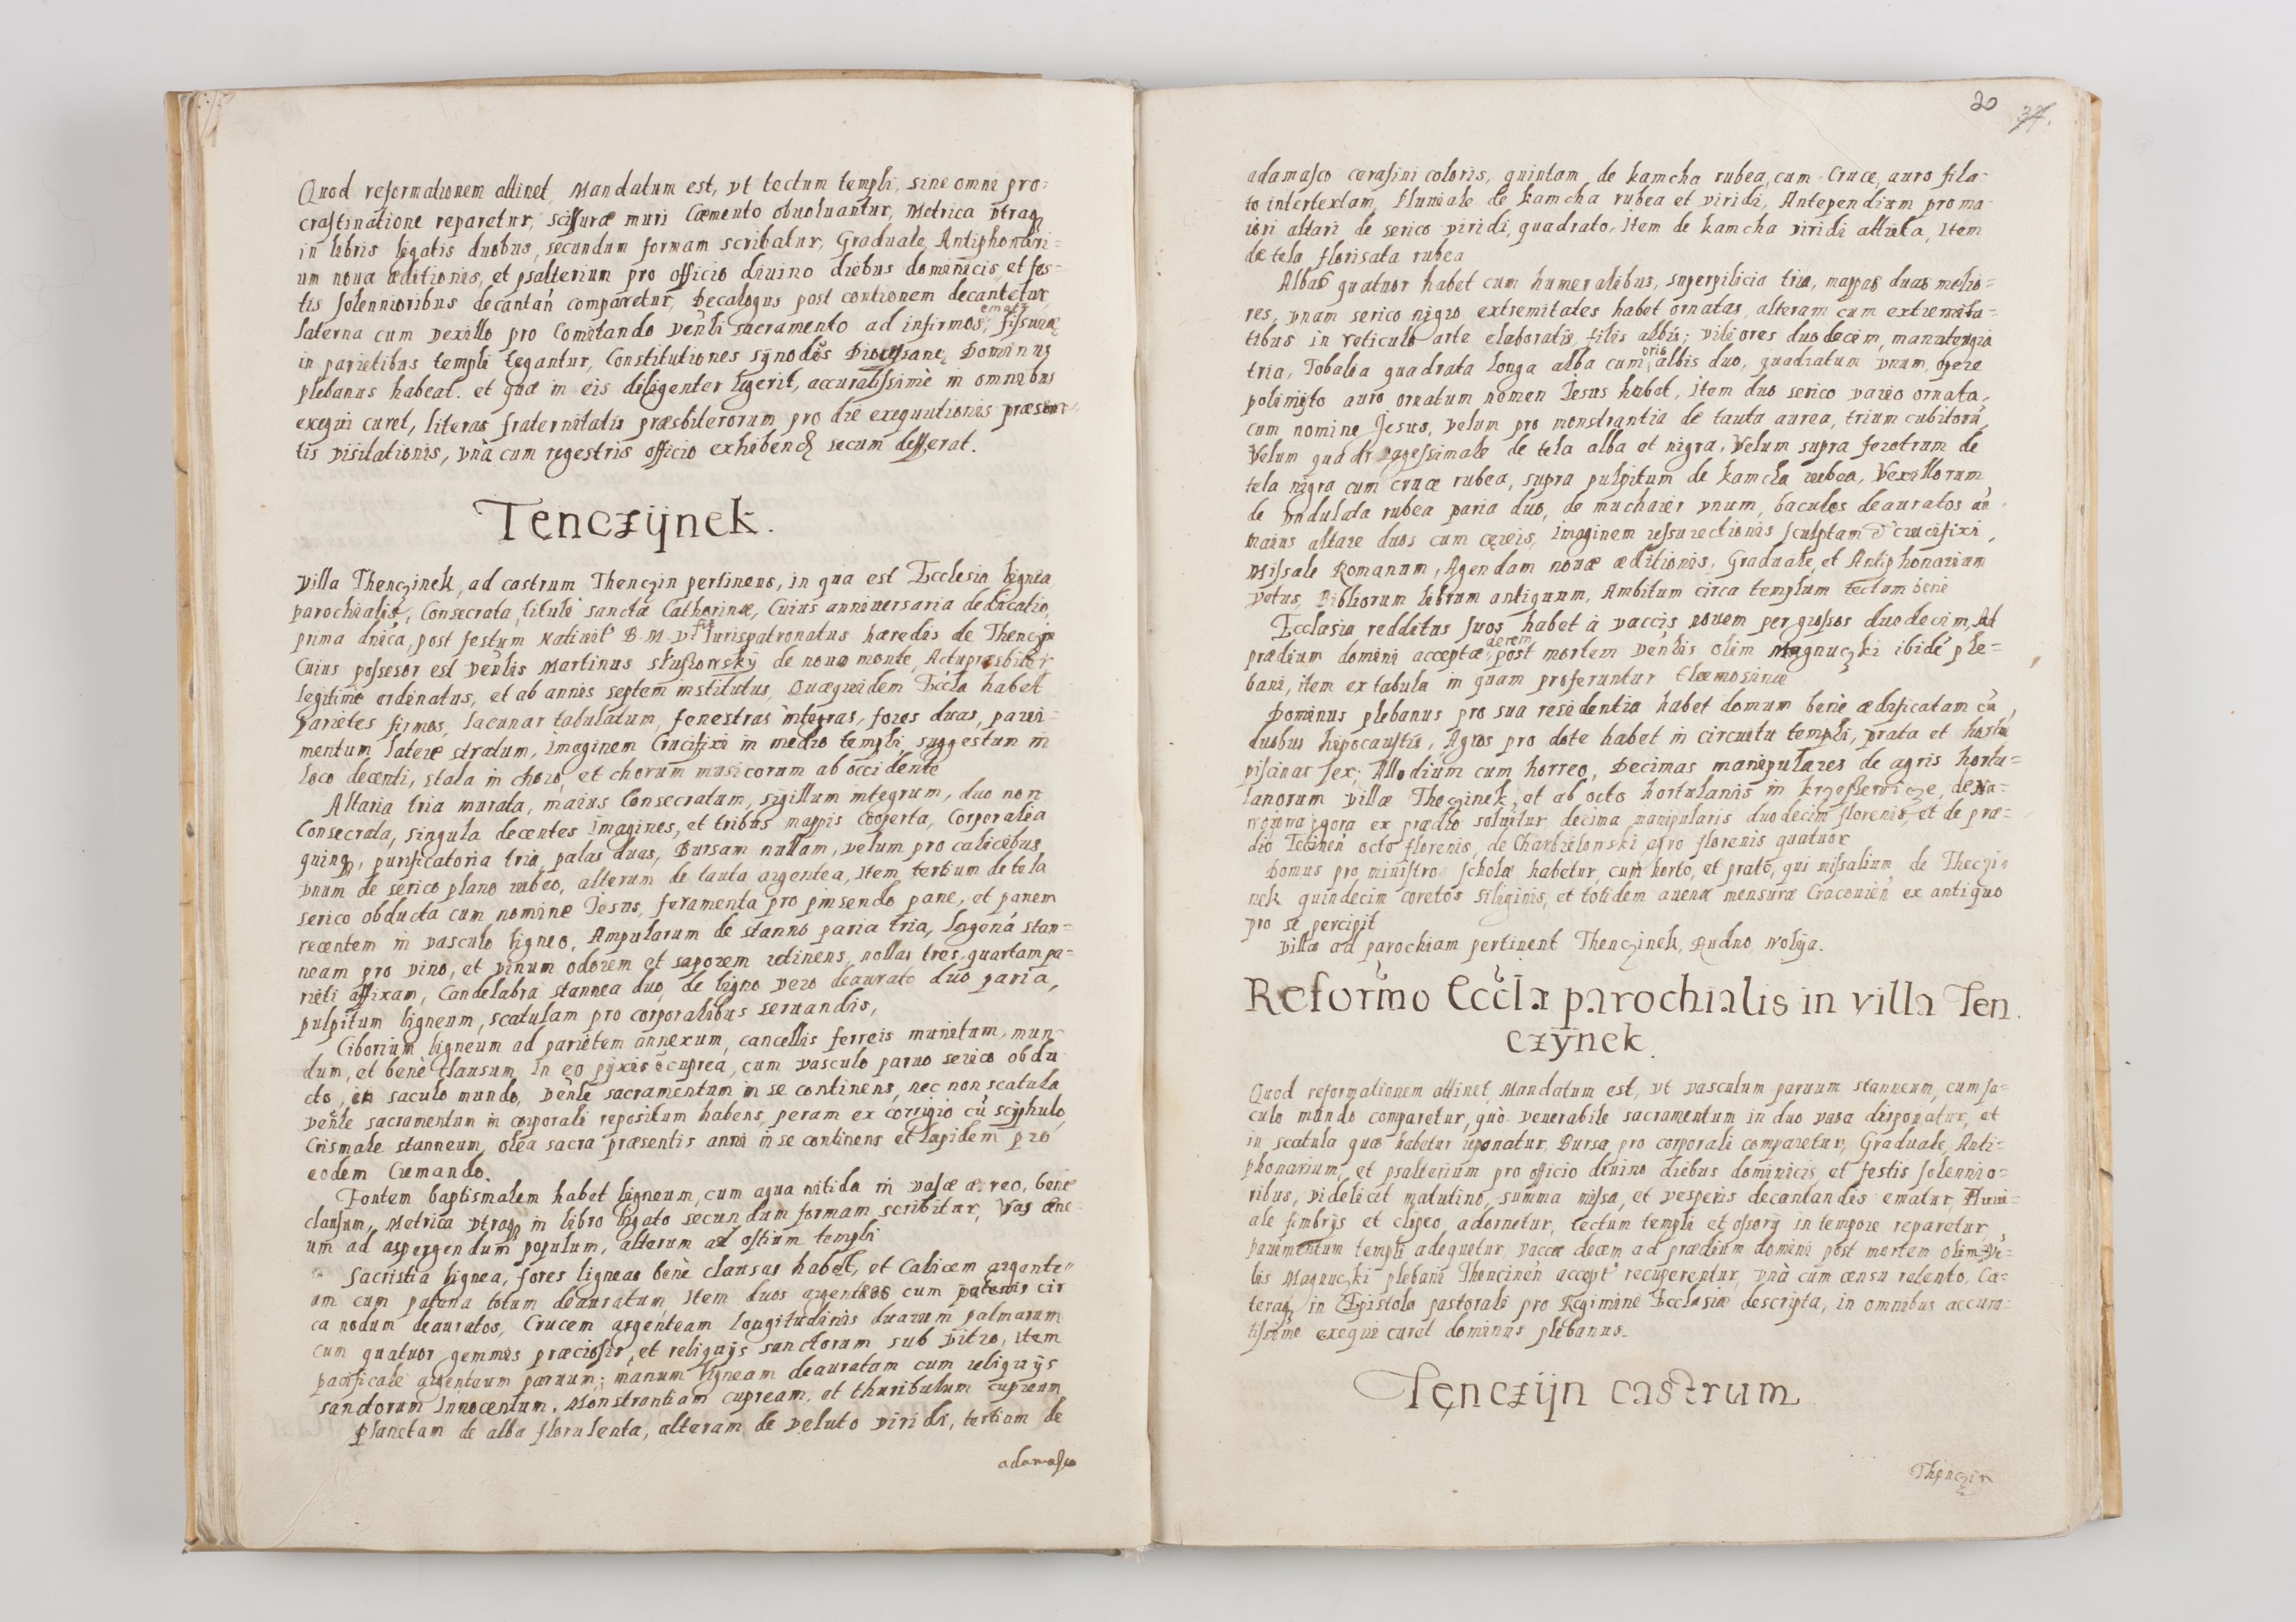 Quod reformationem attinet, Mandatum est, vt tectum templi, sine omni pro=
crastinatione reparetur, scissuræ muri Cæmento obuoluantur, Metrica vtraq
in libris ligatis duobus, secundum formam scribatur, Graduale, Antiphonari=
um noua æditionis, et psalterium pro officio diuino diebus dominicis et fes=
tis solennioribus decantań comparetur, Decalogus post contionem decantetur,
ematr
laterna cum vexillo pro Comitando Venli sacramento ad infirmos, fissuræ
in parietibus templi tegantur, Constitutiones synodes Diocesane, Dominus
plebanus habeat. et quæ in eis diligenter legerit, accuratissimè in omnibus
exequi curet, literas fraternitatis præsbiterorum pro die exequutionis præsen
tis visitationis, vnà cum regestris officio exhibend secum defferat.
Tenczÿnek.
Villa Thenczinek, ad castrum Thenczin pertinens, in qua est Ecclesia lignea
parochialis, Consecrata, tituli sanctæ Catharinæ, Cuius anniuersaria dedicatio,
fit
prima dnica, post festum Natiuit B. M. V. Iurispatronatus hæredis de Thenczin
Cuius possesor est Venlis Martinus de nouo monte, Actu præsbiter
legitime ordinatus, et ab annis septem institutus, Quæquidem Eccla habet
parietes firmos, lacunar tabulatum, fenestras integras, fores duas, paui=
mentum latere stratum, imaginem Crucifixi in medio templi, suggestum in
loco decenti, stala in choro, et chorum musicorum ab occidente
Altaria tria murata, maius Consecratum, sigillum integrum, duo non
Consecrata, singula decentes imagines, et tribus mappis Cooperta, Corporalia
quinq, purificatoria tria, palas duas, Bursam nullam, velum pro calicibus
vnum de serico plano rubeo, alterum de tauta argentea, item tertium de tela
serico obducta cum nomine Iesus, feramenta pro pinsendo pane, et panem
recentem in vasculo ligneo, Ampularum de stanno paria tria, lagená stan=
neam pro vino, et vinum odorem et saporem retinens, nollas tres, quartam pa=
rieti affixam, Candelabra stannea duo, de ligno vero deaurato duo paria,
pulpitum ligneum, scatulam pro corporalibus seruandis,
Ciborium ligneum ad parietem annexum, cancellis ferreis munitum, mun=
dum, et benè clausum, in eo pÿxis cuprea, cum vasculo paruo serico obdu
cto, in saculo mundo, Venle sacramentum in se continens, nec non scatula
Venle sacramentum in corporali repositum habens, peram ex corrigio cū scÿphulo,
Crismale stanneum, olea sacra præsentis anni in se continens et lapidem pro
eodem Cremando.
Fontem baptismalem habet ligneum, cum aqua nitida in vase æreo, bene
clausum, Metrica vtraq in libro ligato secundum formam scribitur, Vas æne=
um ad aspergendum populum, alterum ad ostium templi
Sacristia lignea, fores ligneas benè clausas habet, et Calicem argente
um cum patena totum deauratum, item duos argenteos cum patenis cir
ca nodum deauratos, Crucem argenteam longitudinis duarum palmarum
cum quatuor gemmis præciosis, et reliquÿs sanctorum sub vitro, item
pacificale argenteum paruum, manum ligneam deauratam cum reliquÿs
sanctorum Innocentum. Monstrantiam cupream, et thuribulum cupreum
Planetam de alba florulenta, alteram de veluto viridi, tertiam de
adamasco
20 37.
adamasco cerasini coloris, quintam de kamcha rubea, cum Cruce, auro fila=
to intertextam, Pluuiale de kamcha rubea et viridi, Antependium pro ma=
iori altari de serico viridi, quadrato, item de kamcha viridi attrita, item
de tela florisata rubea
Albas quatuor habet cum humeralibus, superpilicia tria, mappas duas melio=
res, vnam serico nigro extremitates habet ornatas, alteram cum extremita=
tibus in reticulo arte elaboratis filis albis; viliores duodecim, manutergia
oris
tria, Tobalia quadrata longa alba cum albis duo, quadratum vnum opere
polimito auro ornatum nomen Iesus habet, item duo serico vario ornata,
cum nomine Jesus, velum pro monstrantia de tauta aurea, trium cubitorū,
Velum quadragessimale de tela alba et nigra, Velum supra ferotrum de
tela nigra cum cruce rubea, supra pulpitum de kamcha rubea, Vexillorum
de vndulata rubea paria duo, de muchaier vnum, baculos deauratos an
maius altare duos cum cereis, imaginem ressurectionis sculptam & crucifixi,
Missale Romanum, Agendam nouæ æditionis, Graduale, et Antiphonarium
vetus, Bibliorum librum antiquum, Ambitum circa templum tectum benè
Ecclesia redditus suos habet à vaccis nouem per grossos duodecim, Ad
decem
prædium domini acceptæ post mortem Venlis olim Magnuczki ibidē ple=
bani, item ex tabula in quam proferuntur Elæmosinæ
Dominus plebanus pro sua residentia habet domum benè ædificatam cū,
duobus hipocaustis, Agros pro dote habet in circuitu templi, prata et hortū
piscinas sex; Allodium cum horreo, Decimas manipulares de agris hortu=
lanorum villæ Theczinek, et ab octo hortulanis in, de Na=
woiowa gora ex prædio soluitur decima manipularis duodecim florenis, et de præ=
dio Tecinen octo florenis, de agro florenis quatuor
Domus pro ministro scholæ habetur, cum horto, et prato, qui missalium de Theczi=
nek quindecim coretos siliginis, et totidem auenæ mensuræ Cracouien ex antiquo
pro se percipit
Villæ ad parochiam pertinent Thenczinek, Rudno, Wolÿa.
Reformo Eccla parochialis in villa Ten
czÿnek.
Quod reformationem attinet, Mandatum est, vt vasculum paruum stanneum, cum sa=
culo mundo comparetur, quò venerabile sacramentum in duo vasa disponatur, et
in scatula quæ habetur reponatur, Bursa pro corporali comparetur, Graduale, Anti=
phonarium, et psalterium pro officio diuino diebus dominicis et festis solennio=
ribus, videlicet matutino, summa missa, et vesperis decantandis ematur, Pluui=
ale fimbrÿs et clipeo, adornetur, tectum templi et ossorÿ in tempore reparetur,
pauementum templi adequetur, vaccæ decem ad prædium domini post mortem olim Ve=
lis Magnuczki plebani Thencinen accept recuperentur, vnà cum censu retento, Cæ=
teraq in Epistola pastorali pro Regimine Ecclesiæ descripta, in omnibus accura=
tissime exequi curet dominus plebanus.
Tenczÿn castrum
Thenczin